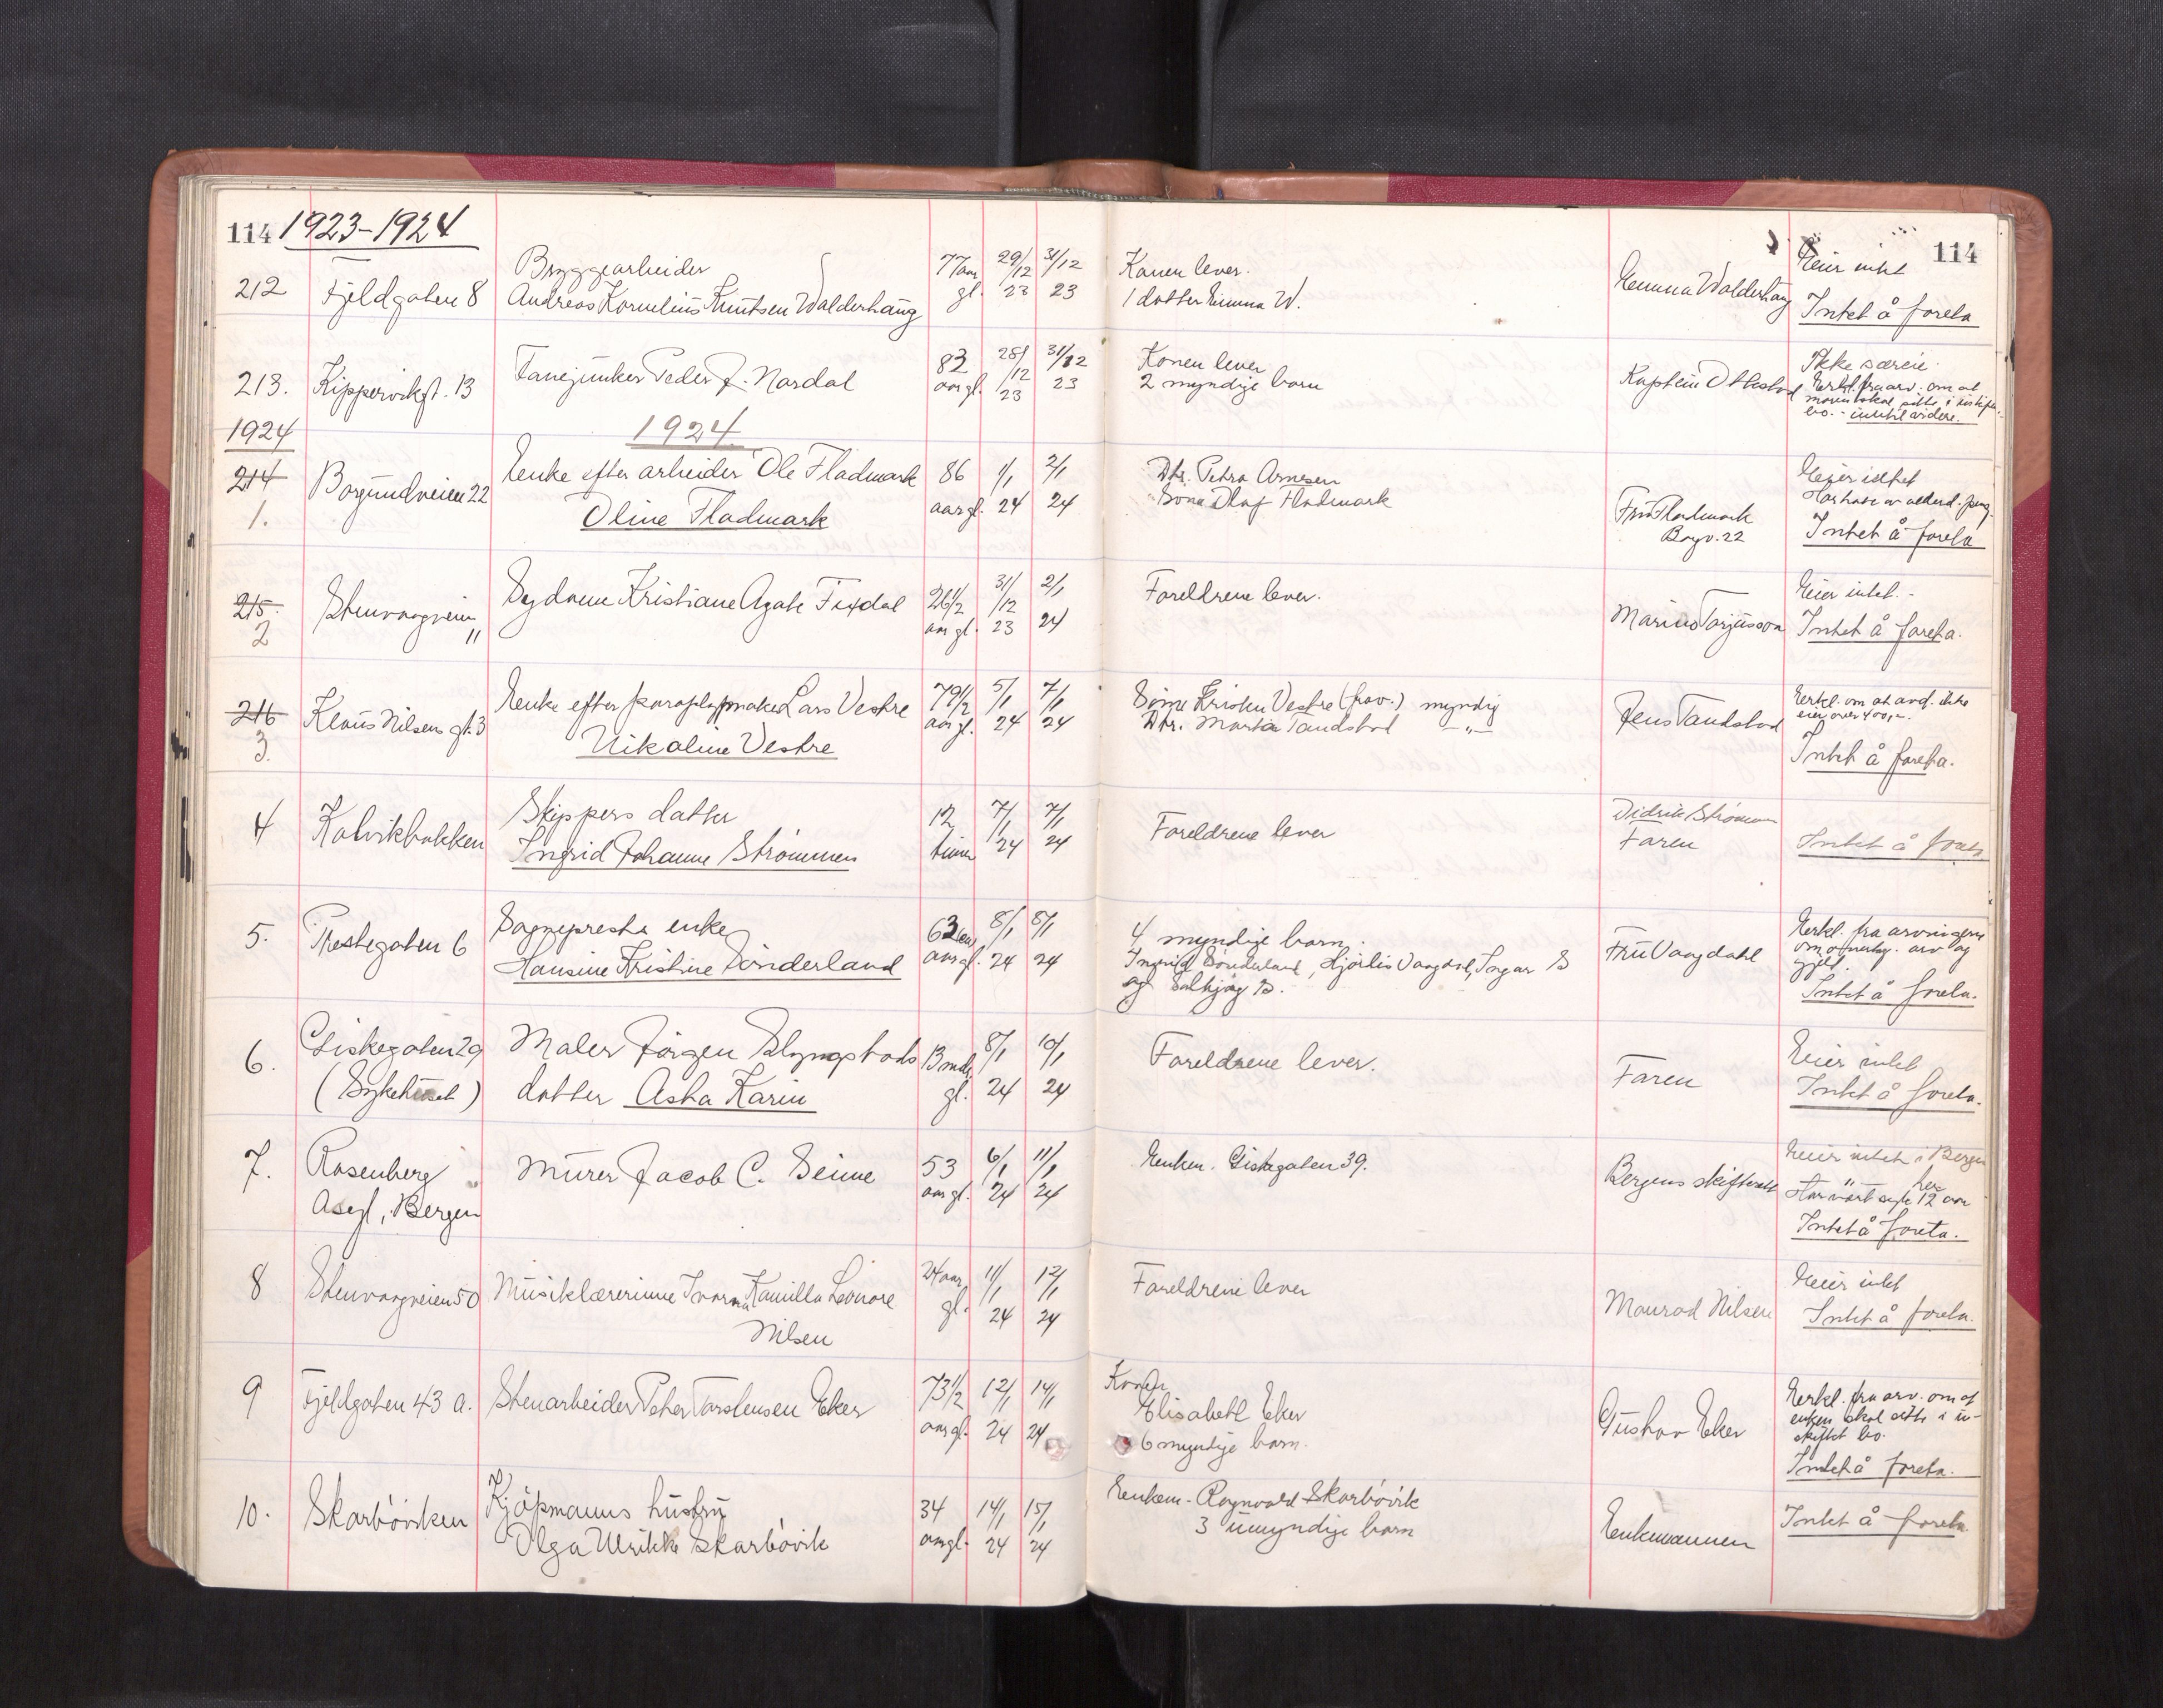 114 1923-1924
114
212 Fjeldgaten 8
Bryggearbeider
Andreas Kornelius Knutsen Walderhaug
77 aar gl. 29/12 23 31/12 23
Konen lever.
1 datter Emma W.
Emma Walderhaug
Eier intet
Intet å foreta
213. Kipperviksgt. 13
Fanejunker Peder J. Nordal
82 aar gl. 28/12 23 31/12 23
Konen lever
2 myndige barn
Kaptein Ottestad
Ikke særeie.
Erkl. fra arv. om at
moren skal sitte i uskiftet
bo. - inntil videre.
1924
1924
214 1. Borgundveien 22
Enke efter arbeider Ole Fladmark
Oline Fladmark
86 aar gl. 1/1 24 2/1 24
Dtr. Petra Arnesen
Sønn Olaf Fladmark
Fru Fladmark
Borgv. 22
Eier intet
Intet å foreta
215. 2 Stenvaagveien 11
Sydame Kristiane Agate Fixdal
26 1/2 aar gl. 31/12 23 2/1 24
Foreldrene lever.
Marius Torjusson
Eier intet. -
Intet å foreta.
216 3. Klaus Nilsens gt. 3
Enke efter paraplymaker Lars Vestre
Nikoline Vestre
79 1/2 aar gl. 5/1 24 7/1 24
Sønn Kristen Vestre (frav.) myndig
Dtr. Marta Tandstad -"-
Jens Tandstad
Erkl. om at avd. ikke
eier over 400,-.
Intet å foreta.
4 Kalvikbakken
Skippers datter
Ingrid Johanne Strømmen
12 timer 7/1 24 7/1 24
Foreldrene lever
Didrik Strømmen
Faren
Intet å foreta
5. Prestegaten 6
Sogneprests enke
Hansine Kristine Sönderland
63 aar gl. 8/1 24 8/1 24
4 myndige barn.
Ingrid Sönderland, Hjørdis Vaagdal, Ingar S
og Solbjørg S.
Fru Vaagdahl
Erkl. fra arvingene
om overtag. arv og
gjeld.
Intet å foreta.
6. Giskegaten 29
(Sykehuset)
Maler Jørgen Slyngstads
datter Asta Karin
13 mdr. gl. 8/1 24 10/1 24
Foreldrene lever.
Faren
Eier intet
Intet å foreta.
7. Rosenberg
Asyl, Bergen
Murer Jacob C. Seime
53 aar gl. 6/1 24 11/1 24
Enken. Giskegaten 39.
Bergens skifterett
Eier intet i Bergen
" her
Har vært syk 12 aar
Intet å foreta.
8 Stenvaagveien 50
Musiklærerinne Ivarna Kamilla Leonore
Nilsen
24 aar gl. 11/1 24 12/1 24
Foreldrene lever
Monrad Nilsen
Eier intet
Intet å foreta.
9 Fjeldgaten 43 a.
Stenarbeider Peter Torstensen Eker
73 1/2 aar gl. 12/1 24 14/1 24
Konen
Elisabeth Eker
6 myndige barn.
Gustav Eker
Erkl. fra arv. om at
enken skal sitte i u-
skiftet bo.
Intet å foreta.
10. Skarböviken
Kjøpmanns hustru
Olga Ulrikke Skarbövik
34 aar gl. 14/1 24 15/1 24
Enkem. Ragnvald Skarbövik
3 umyndige barn
Enkemannen
Intet å foreta